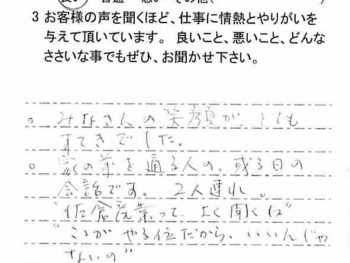 3 お客様の声を聞くほど、仕事に情熱とやりがいを
与えて頂いています。 良いこと、悪いこと、どんな
ささいな事でもぜひ、お聞かせ下さい。
○ みなさんの笑顔が、とても
すてきでした。
○ 家の前を通る人の、或る日の
会話です。 2人連れ。
"佐倉産業って、よく聞くけど
ここがやる位だから、いいんじゃ
ないの"